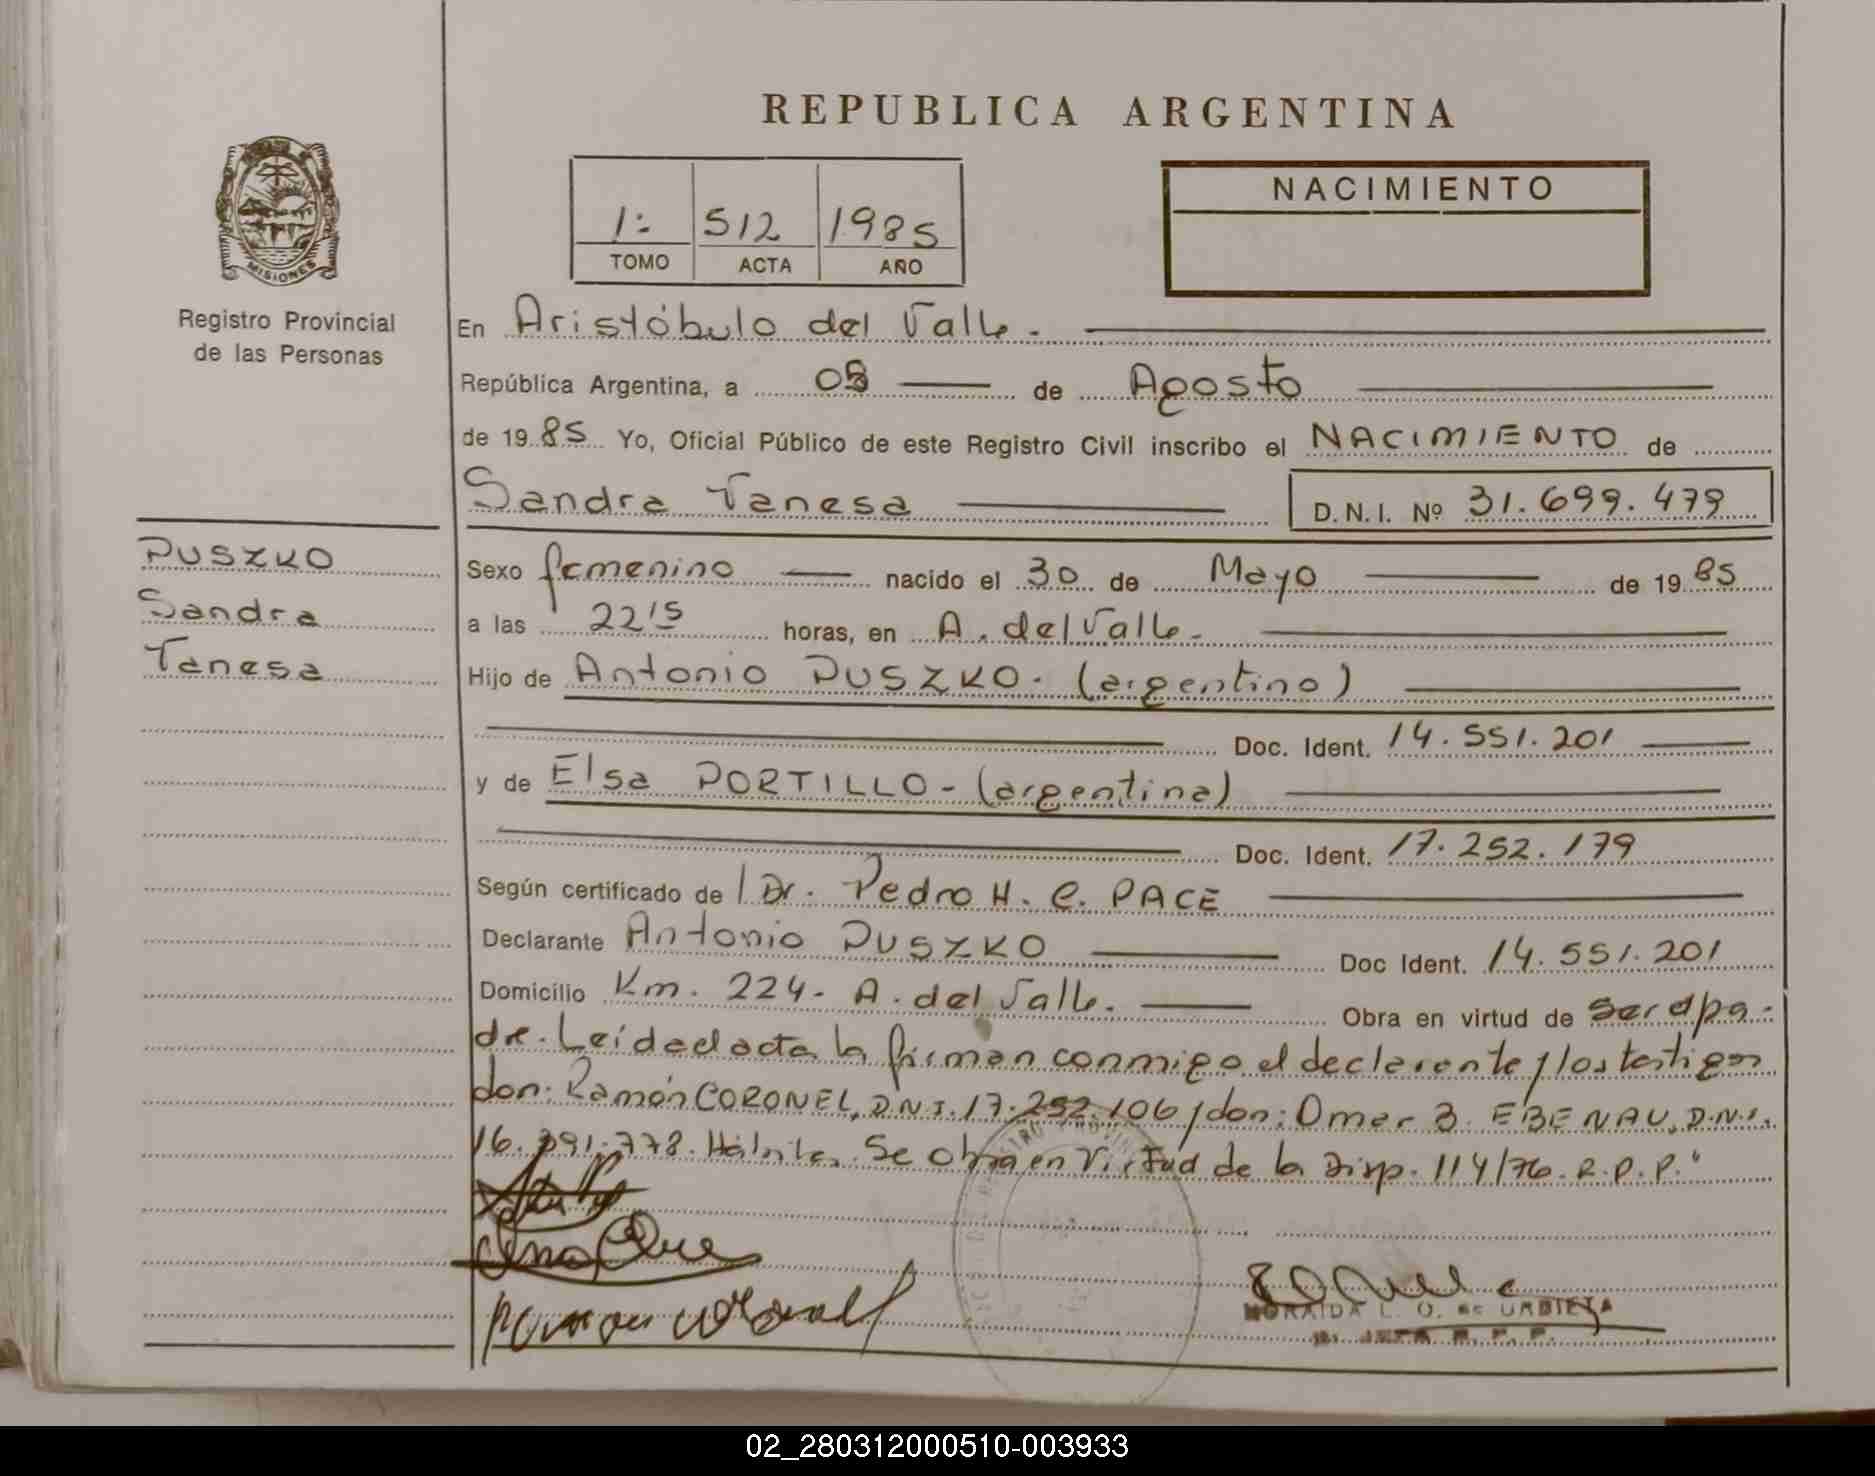 REPUBLICA ARGENTINA
NACIMIENTO
1: 512 1985
TOMO ACTA AÑO
MISIONES
Registro Provincial
de las Personas
En Aristóbulo del Valle.
República Argentina, a 08 de Agosto
de 1985 Yo, Oficial Público de este Registro Civil inscribo el NACIMIENTO de
Sandra Vanesa D.N.I. Nº 31.699.479
PUSZKO
Sandra
Vanesa
Sexo femenino nacido el 30 de Mayo de 1985
a las 22¹⁵ horas, en A. del Valle.
Hijo de Antonio PUSZKO. (argentino)
Doc. Ident. 14.551.201
y de Elsa PORTILLO - (argentina)
Doc. Ident. 17.252.179
Según certificado de Dr. Pedro H. C. PACE
Declarante Antonio PUSZKO Doc Ident. 14.551.201
Domicilio Km. 224- A. del Valle. Obra en virtud de ser el pa-
dre. Leída el acta la firman conmigo el declarante y los testigos
don: Ramón CORONEL, D.N.I. 17.252.106 y don: Omar B. EBENAU, D.N.I.
16.391.778. Hábiles. Se obra en Virtud de la Disp. 114/76. R.P.P."
MORAIDA L. O. de URBIETA
JEFA R. P. P.
02_280312000510-003933